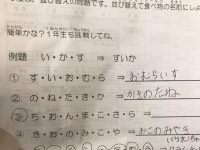 並び替えの問題です。並び替えて食べ物の名前にしよ
簡単かな？1年生も挑戦してね。
例題 い・か・す ⇒ すいか
① す・い・お・む・ら ⇒ おむらいす
② の・ね・た・き・か ⇒ かきのたね
③ ち・お・ん・ま・こ・さ・ら ⇒
④ き・お・の・み・こ・や ⇒ おこのみやき